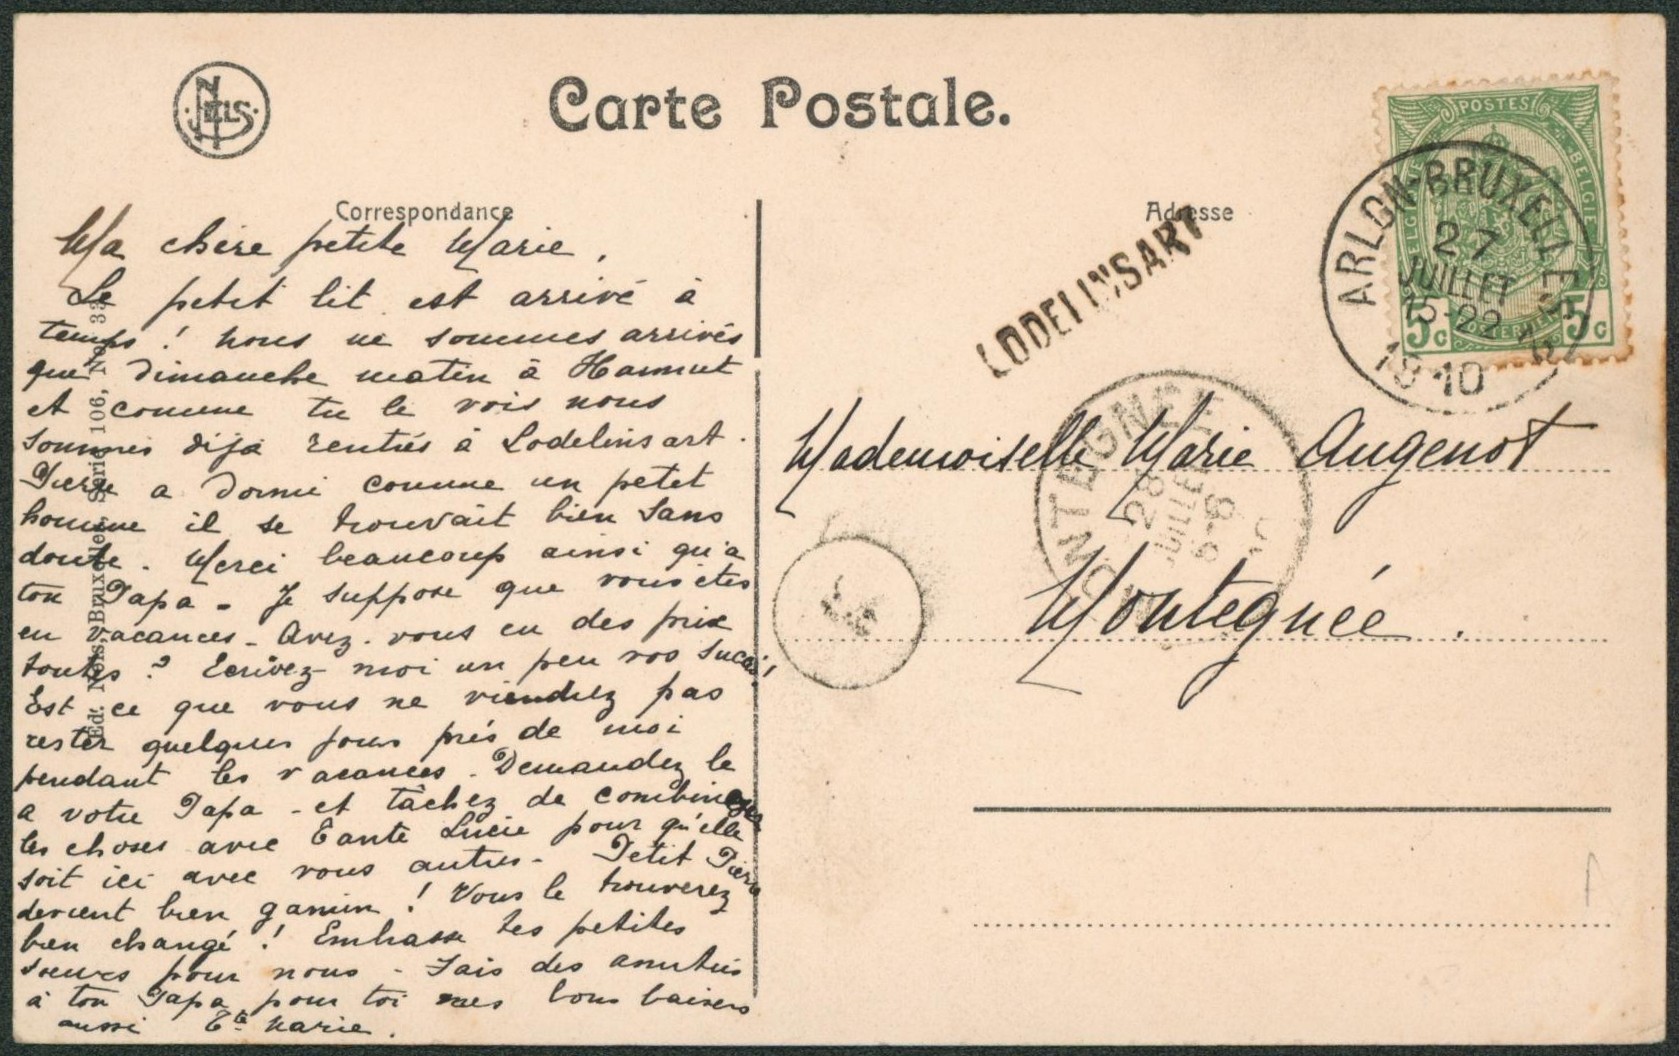 NELS
Carte Postale.
Correspondance
Adresse
POSTES
BELGIE
5c 5c
ARLON-BRUXELLES 2
27
JUILLET
15-22
1910
LODELINSART
MONTEGNÉE
28
JUILLET
5-6
Ma chère petite Marie,
Le petit lit est arrivé à
temps ! nous ne sommes arrivés
que dimanche matin à Hannut
et comme tu le vois nous
sommes déjà rentrés à Lodelinsart.
Pierre a dormi comme un petit
homme il se trouvait bien sans
doute. Merci beaucoup ainsi qu'a
ton Papa - Je suppose que vous êtes
en vacances - Avez-vous eu des prix
toutes ? Ecrivez-moi un peu vos succès !
Est ce que vous ne viendrez pas
rester quelques jours près de moi
pendant les vacances. Demandez le
a votre Papa - et tâchez de combiner
les choses avec Tante Lucie pour qu'elle
soit ici avec vous autres - Petit Pierre
devient bien gamin ! Vous le trouverez
bien changé ! Embrasse tes petites
soeurs pour nous - Fais des amitiés
à ton Papa pour toi mes bons baisers
aussi Tte Marie.
Mademoiselle Marie Augenot
Montegnée.
Ed. Nels, Bruxelles, Serie 106, No. 33